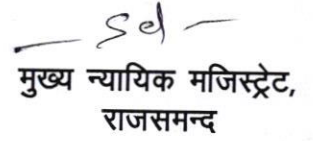 — Sd —
मुख्य न्यायिक मजिस्ट्रेट,
राजसमन्द